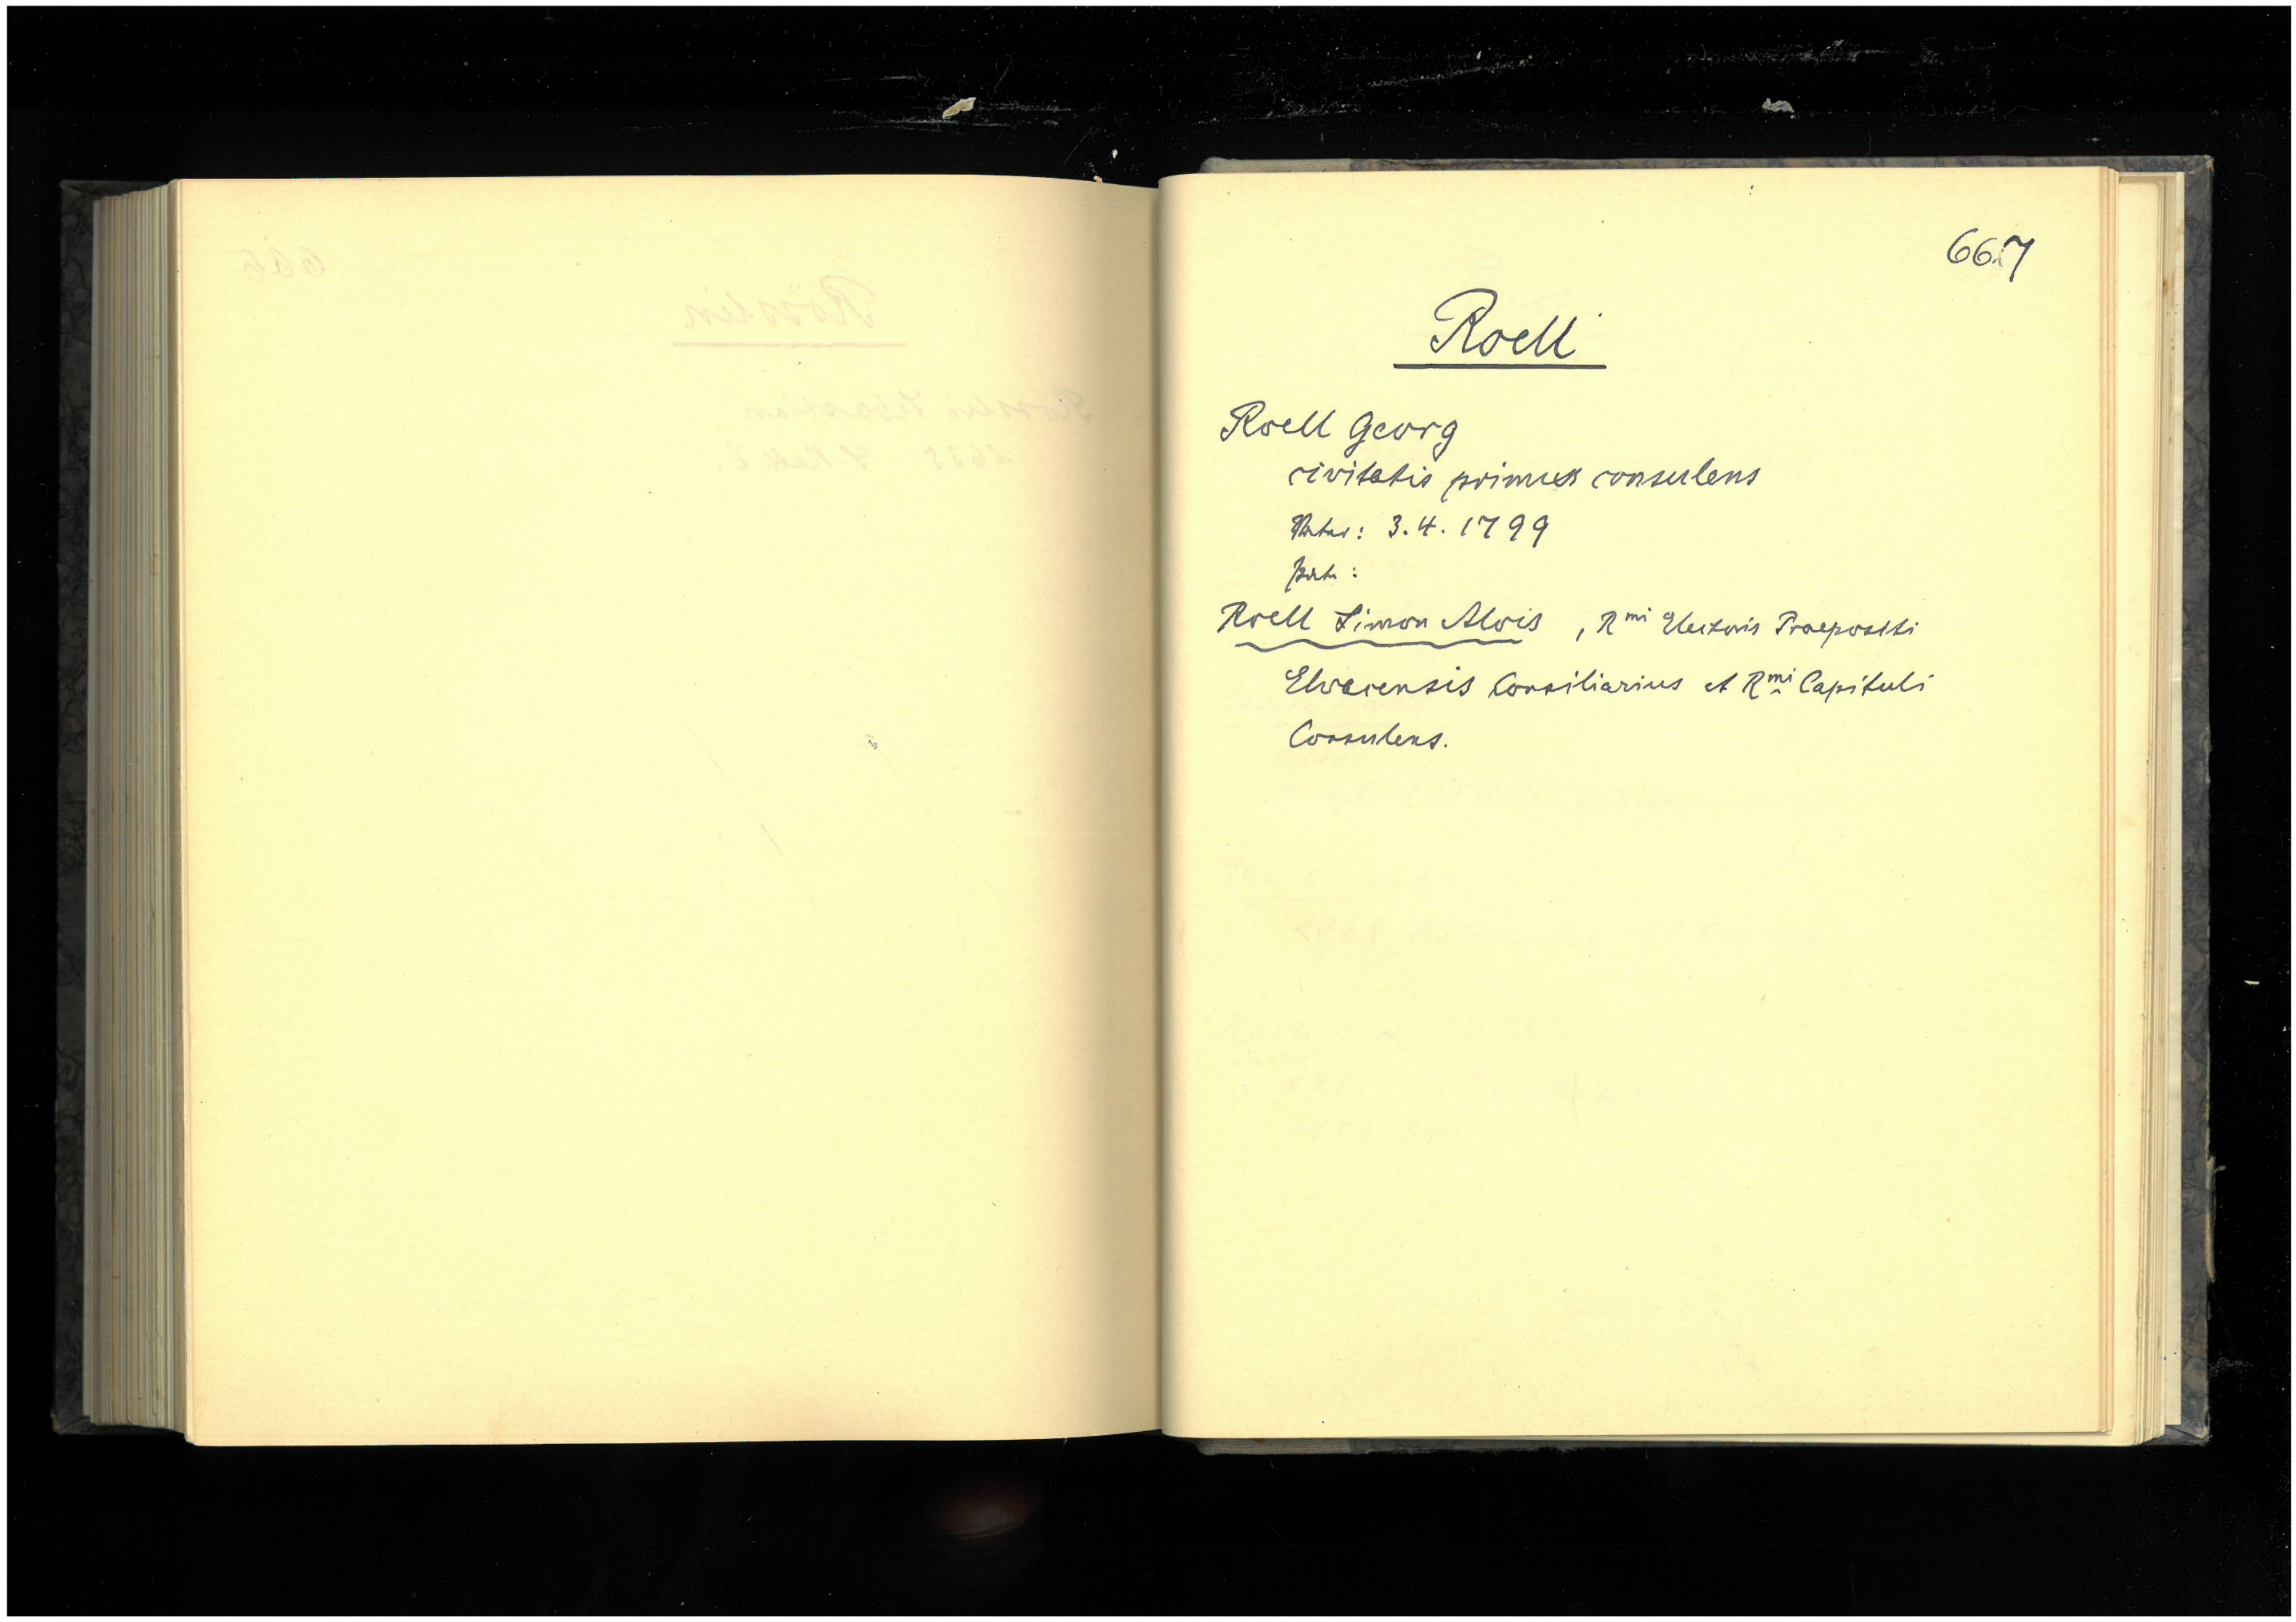 667
Roell
Roell Georg
civitatis primus consulens
Pater: 3.4.1799
Pat:
Roell Simon Alois, Rmi Electoris Praepositi
Elvacensis Consiliarius et Rmi Capituli
Consulens.